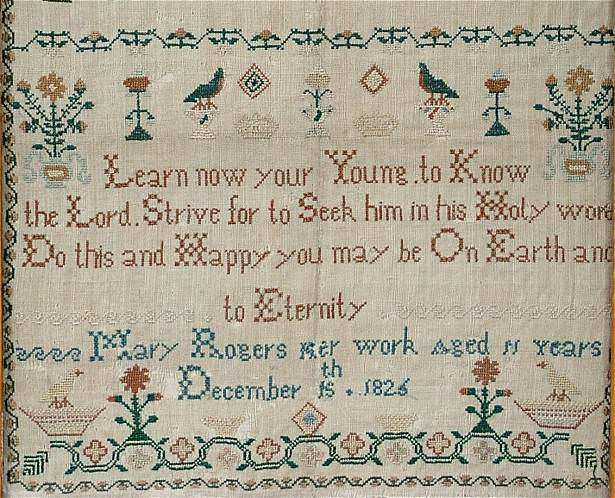 Learn now your Young.to Know
the Lord.Strive for to Seek him in his Holy word
Do this and Happy you may be On Earth and
to Eternity
Mary Rogers Her work Aged 11 Years
December 15th . 1826